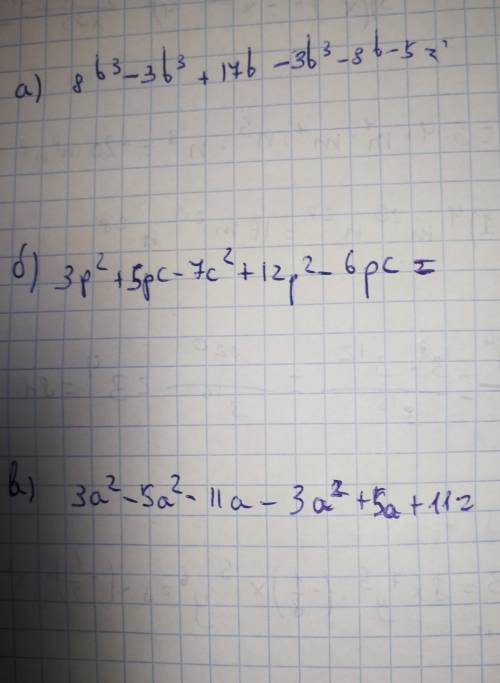 а) 8b³ - 3b³ + 17b - 3b³ - 8b - 5 =
б) 3p² + 5pc - 7c² + 12p² - 6pc =
в) 3a² - 5a² - 11a - 3a² + 5a + 11 =